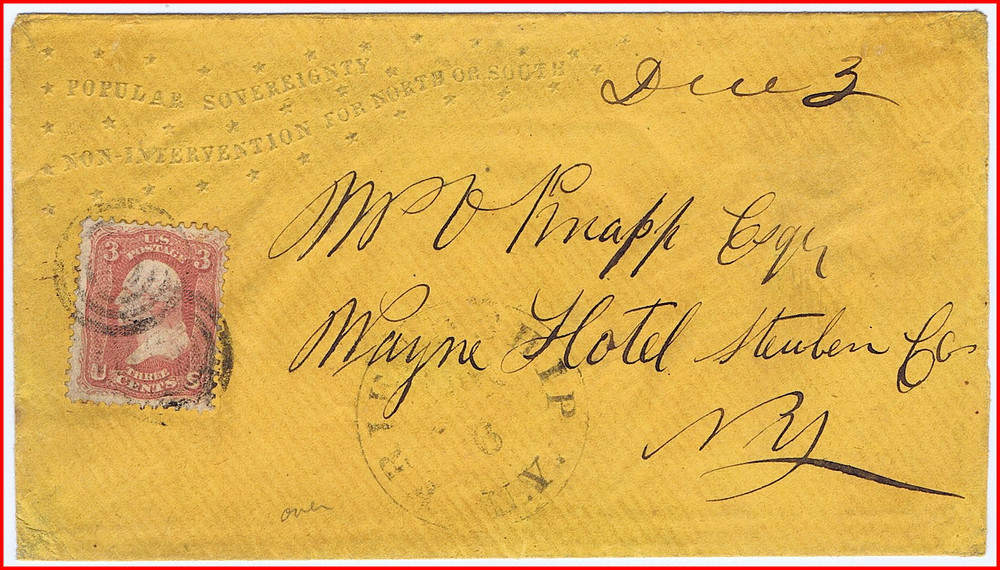 POPULAR SOVEREIGNTY
NON-INTERVENTION FOR NORTH OR SOUTH
Due 3
Knapp Esqr
Wayne Hotel Steuben Co
NY
3 U.S. POSTAGE 3
U THREE CENTS S
N.Y.
over